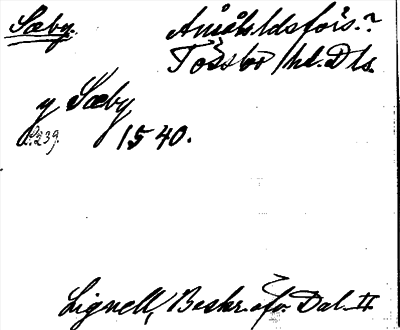 Sæby. Åmåls ldsförs.?
Tössbo hd. Dls.
y Sæby
s. 239. 1540.
Lignell, Beskr. öfv. Dal. II